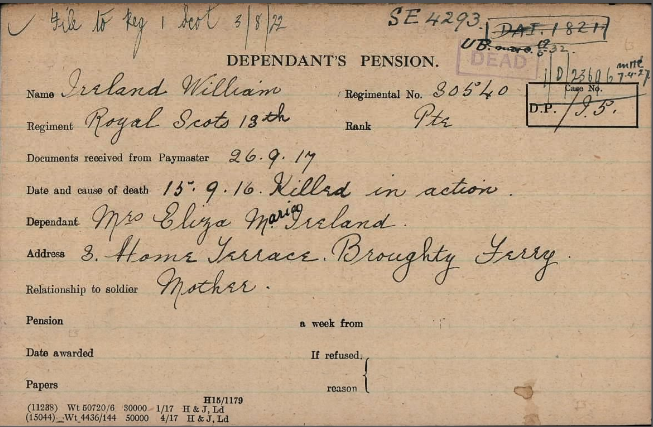 File to Reg 1 Scot 3/8/22
SE 4293.
DEAD
DEPENDANT'S PENSION.
1/D/23606
7.4.27
Name Ireland William Regimental No. 30540
Case No.
Regiment Royal Scots 13th Rank Pte
D.P.
Documents received from Paymaster 26.9.17
Date and cause of death 15.9.16. Killed in action.
Dependant Mrs Eliza Maria Ireland.
Address 3. Home Terrace. Broughty Ferry.
Relationship to soldier Mother.
Pension a week from
Date awarded If refused,
Papers reason
H15/1179
(11238) Wt 50720/6 30000 1/17 H & J, Ld
(15044) Wt 4436/144 50000 4/17 H & J, Ld